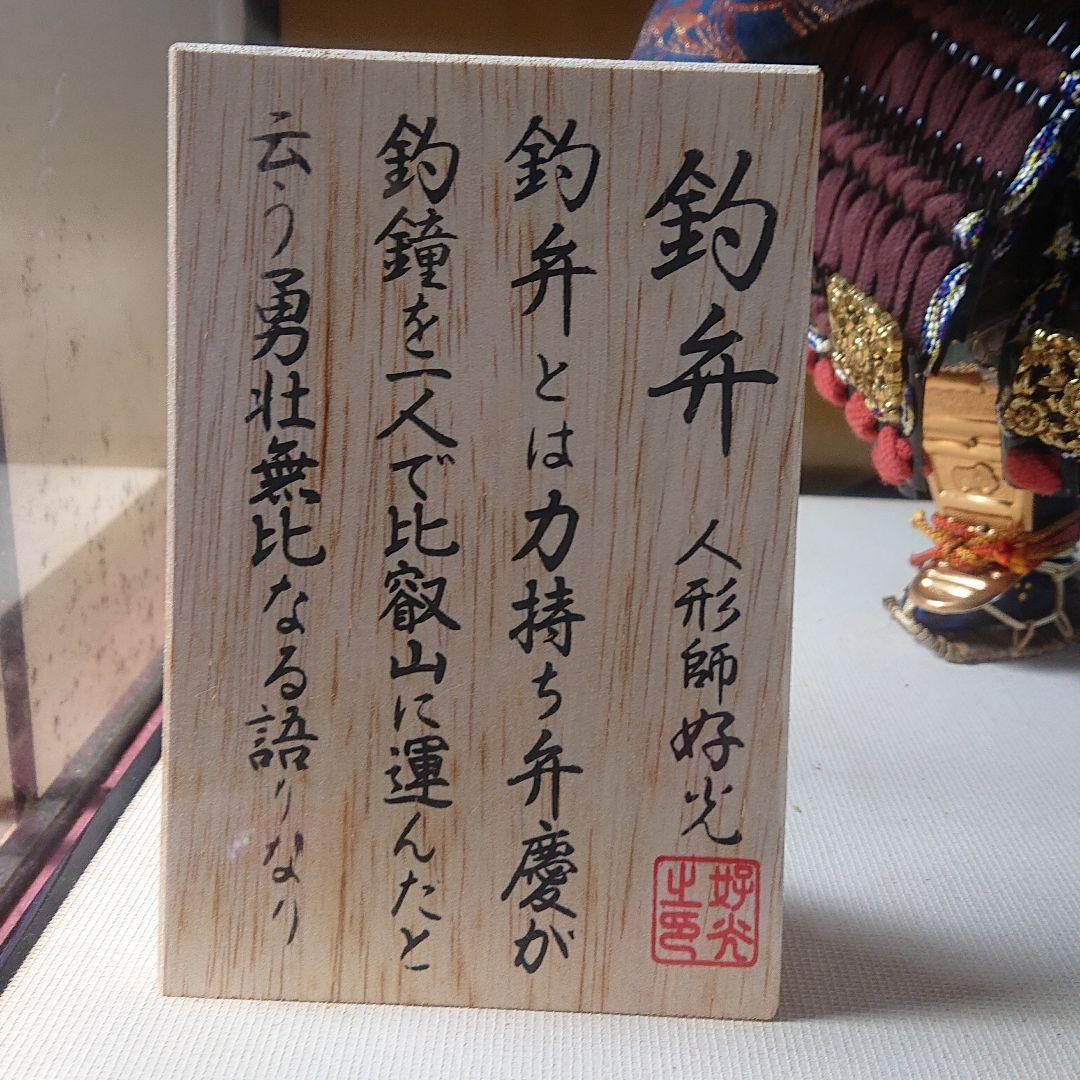 釣弁 人形師好光
好光之印
釣弁とは力持ち弁慶が
釣鐘を一人で比叡山に運んだと
云う勇壮無比なる語りなり